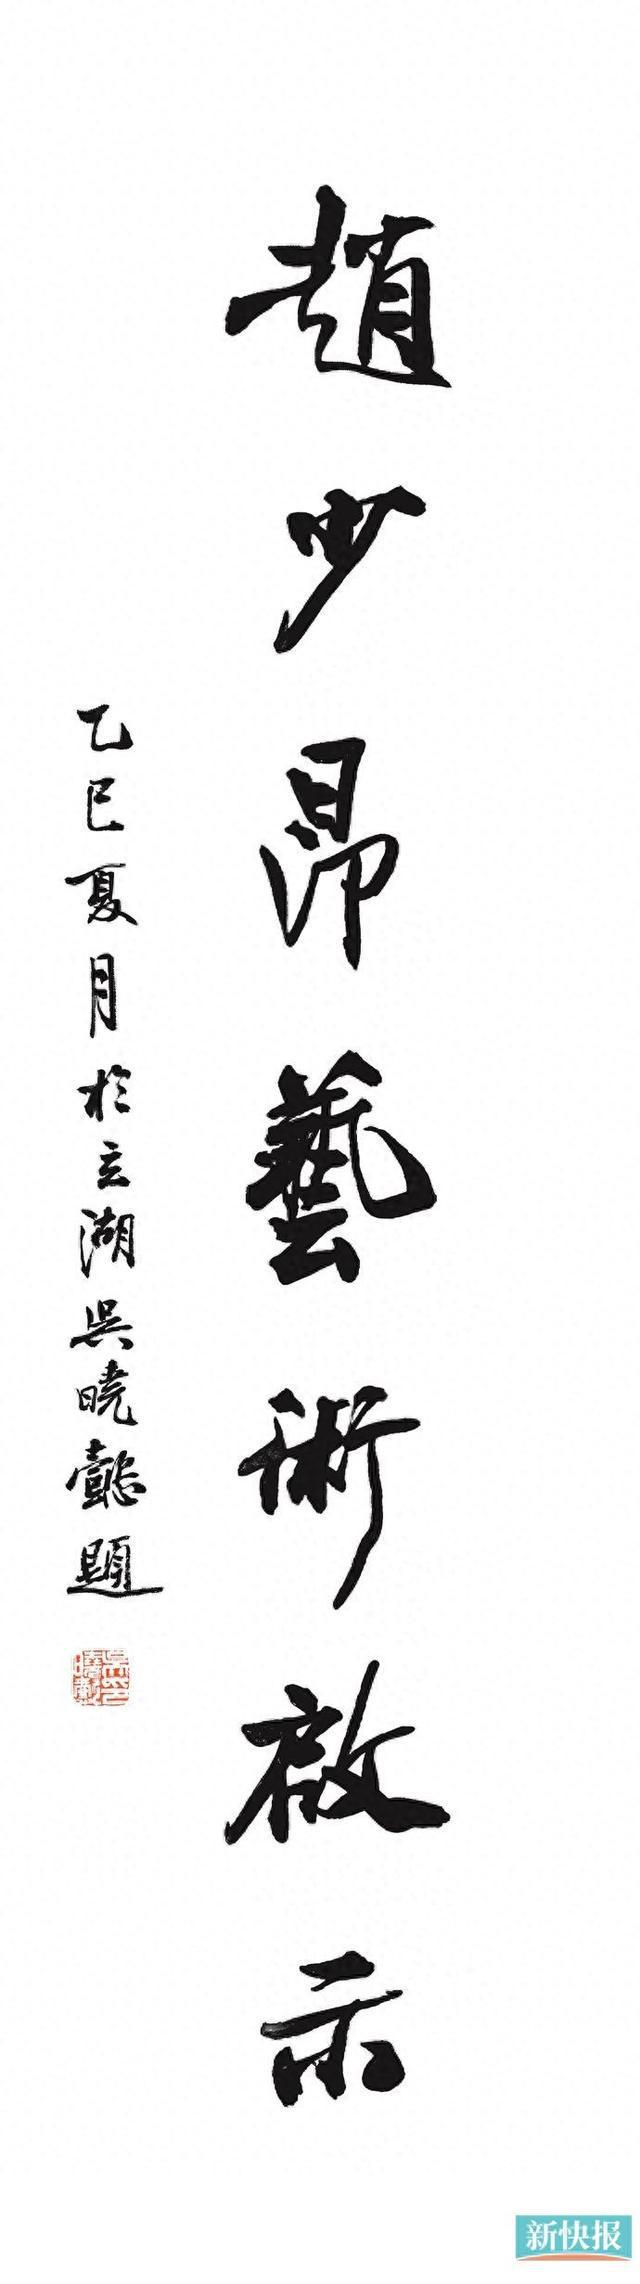 趙少昂藝術啟示
乙巳夏月於玄湖吳曉懿題
新快报